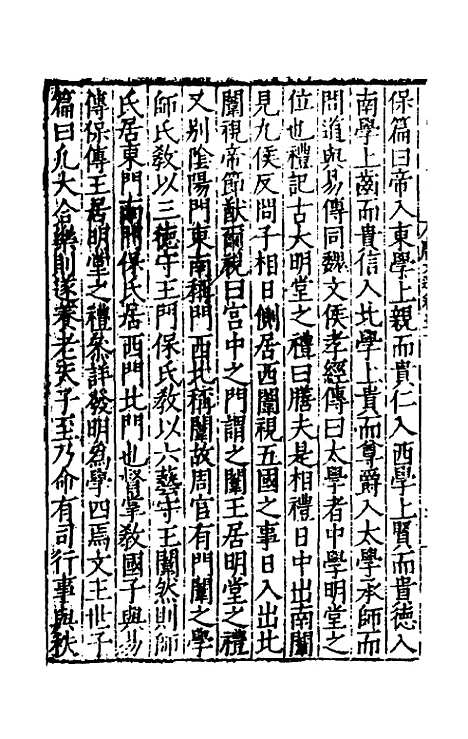 保篇曰帝入東學上親而貴仁入西學上賢而貴德入
南學上齒而貴信入北學上貴而尊爵入太學承師而
問道與易傳同魏文侯孝經傳曰太學者中學明堂之
位也禮記古大明堂之禮曰膳夫是相禮日中出南闈
見九侯反問子相日側居西闈視五國之事日入出北
闈視帝節猷爾雅曰宫中之門謂之闈王居明堂之禮
又别陰陽門東南稱門西北稱闈故周官有門闈之學
師氏敎以三德守王門保氏敎以六藝守王闈然則師
氏居東門南門保氏居西門北門也知掌敎國子與易
傳保傳王居明堂之禮叅詳發明爲學四焉文王世子
篇曰凡大合樂則遂養老天子至乃命有司行事興秩